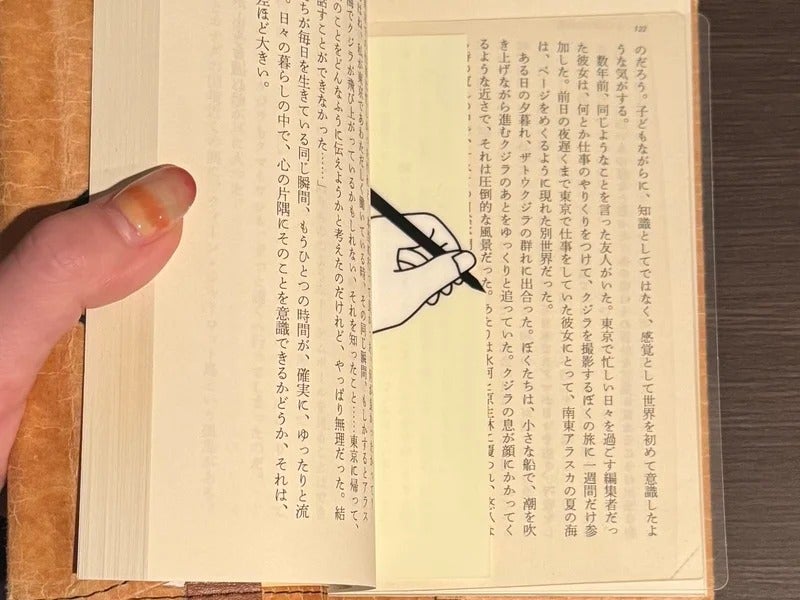 122
のだろう。子どもながらに、知識としてではなく、感覚として世界を初めて意識したよ
うな気がする。
数年前、同じようなことを言った友人がいた。東京で忙しい日々を過ごす編集者だっ
た彼女は、何とか仕事のやりくりをつけて、クジラを撮影するぼくの旅に一週間だけ参
加した。前日の夜遅くまで東京で仕事をしていた彼女にとって、南東アラスカの夏の海
は、ページをめくるように現れた別世界だった。
ある日の夕暮れ、ザトウクジラの群れに出合った。ぼくたちは、小さな船で、潮を吹
き上げながら進むクジラのあとをゆっくりと追っていた。クジラの息が顔にかかってく
るような近さで、それは圧倒的な風景だった。あたりは氷河と原生林に覆われ、
ね、私が東京であわただしく働いている時、その同じ瞬間、もしかするとアラス
海でクジラが飛び上がっているかもしれない、それを知ったこと……東京に帰って、
のことをどんなふうに伝えようかと考えたのだけれど、やっぱり無理だった。結
話すことができなかった……」
ちが毎日を生きている同じ瞬間、もうひとつの時間が、確実に、ゆったりと流
。日々の暮らしの中で、心の片隅にそのことを意識できるかどうか、それは、
差ほど大きい。